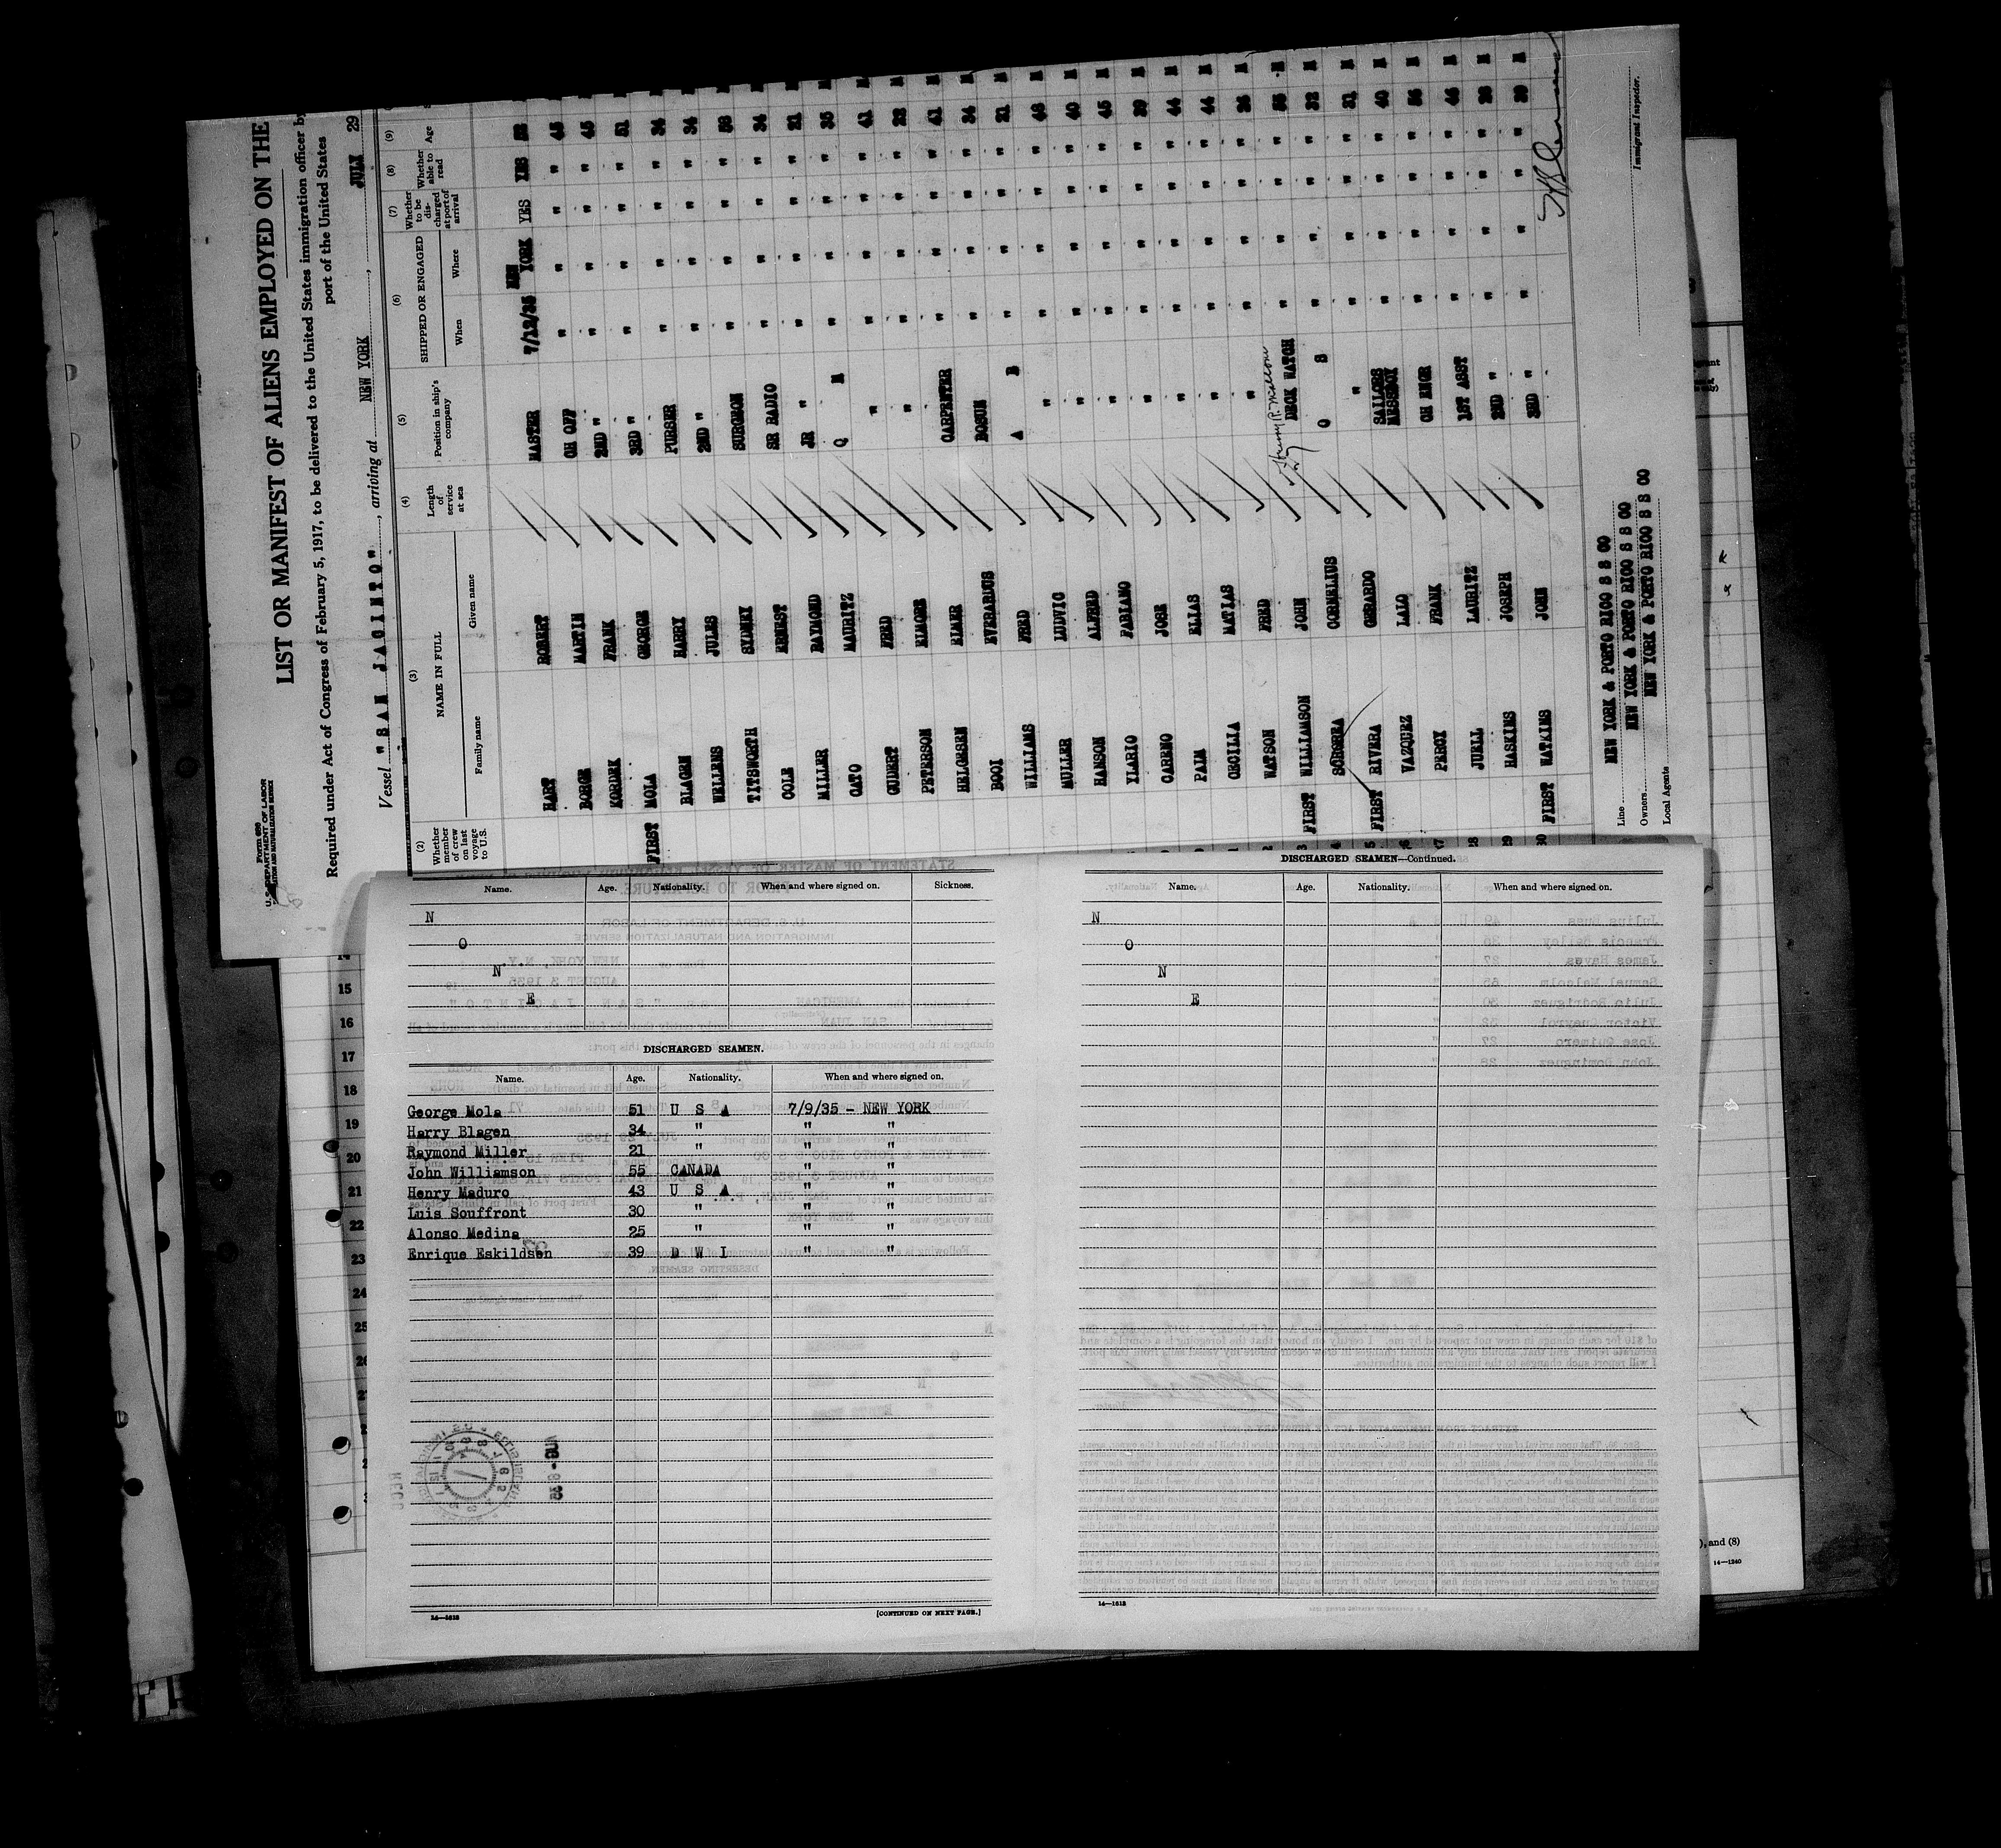 Form 680
U. S. DEPARTMENT OF LABOR
LIST OR MANIFEST OF ALIENS EMPLOYED ON THE
Required under Act of Congress of February 5, 1917, to be delivered to the United States immigration officer by
port of the United States
Vessel "SAN JACINTO", arriving at NEW YORK, JULY 29
(2) (3) (4) (5) (6) (7) (8) (9)
Whether member of crew on last voyage to U.S. NAME IN FULL Length of service at sea Position in ship's company SHIPPED OR ENGAGED Whether to be discharged at port of arrival Whether able to read Age
Family name Given name When Where
HART ROBERT MASTER 7/12/35 NEW YORK YES YES 52 M
BORGE MARTIN CH OFF " " " " 45
KORDEK FRANK 2ND " " " " " 45
FIRST MOLA GEORGE 3RD " " " " " 51
BLAGEN HARRY PURSER " " " " 34
WELLENS JULES 2ND " " " " " 34
TITSWORTH SYDNEY SURGEON " " " " 58
COLE ERNEST SR RADIO " " " " 34
MILLER RAYMOND JR " " " " " 21
CATO MAURITZ Q M " " " " 35
GUDERT FRED " " " " " 41 M
PETERSON ELMORE " " " " " 22 M
HELGESEN ELMER CARPENTER " " " " 41 M
BOOI EVERARDUS BOSUN " " " " 34 M
WILLIAMS FRED A B " " " " 21 M
MULLER LUDVIG " " " " " 48 M
HANSON ALFRED " " " " " 40 M
YLARIO FABIANO " " " " " 45 M
CARENO JOSE " " " " " 39 M
PAIM ELIAS " " " " " 44 M
CECILIA MATIAS " " " " " 44 M
WATSON FRED " " " " " 26 M
FIRST WILLIAMSON JOHN DECK WATCH " " " " 55 M
SORGREA CORNELIUS O S " " " " 32 M
FIRST RIVERA GERARDO " " " " " 21 M
VAZQUEZ LALO SAILORS MESSBOY " " " " 40 M
PERCY FRANK CH ENGR " " " " 56 M
JUELL LAURITZ 1ST ASST " " " " 46 M
HASKINS JOSEPH 2ND " " " " " 28 M
FIRST WATKINS JOHN 3RD " " " " " 39 M
Line NEW YORK & PORTO RICO S S CO
Owners NEW YORK & PORTO RICO S S CO
Local Agents NEW YORK & PORTO RICO S S CO
Immigrant Inspector.
Name. Age. Nationality. When and where signed on. Sickness.
N
O
N
E
DISCHARGED SEAMEN.
Name. Age. Nationality. When and where signed on.
George Mola 51 U S A 7/9/35 - NEW YORK
Harry Blagen 34 " " "
Raymond Miller 21 " " "
John Williamson 55 CANADA " "
Henry Maduro 43 U S A " "
Luis Souffront 30 " " "
Alonso Medina 25 " " "
Enrique Eskildsen 39 D W I " "
14—1612
[CONTINUED ON NEXT PAGE.]
DISCHARGED SEAMEN—Continued.
Name. Age. Nationality. When and where signed on.
N
O
N
E
14—1612
15
16
17
18
19
20
21
22
23
24
25
), and (8)
14—1240